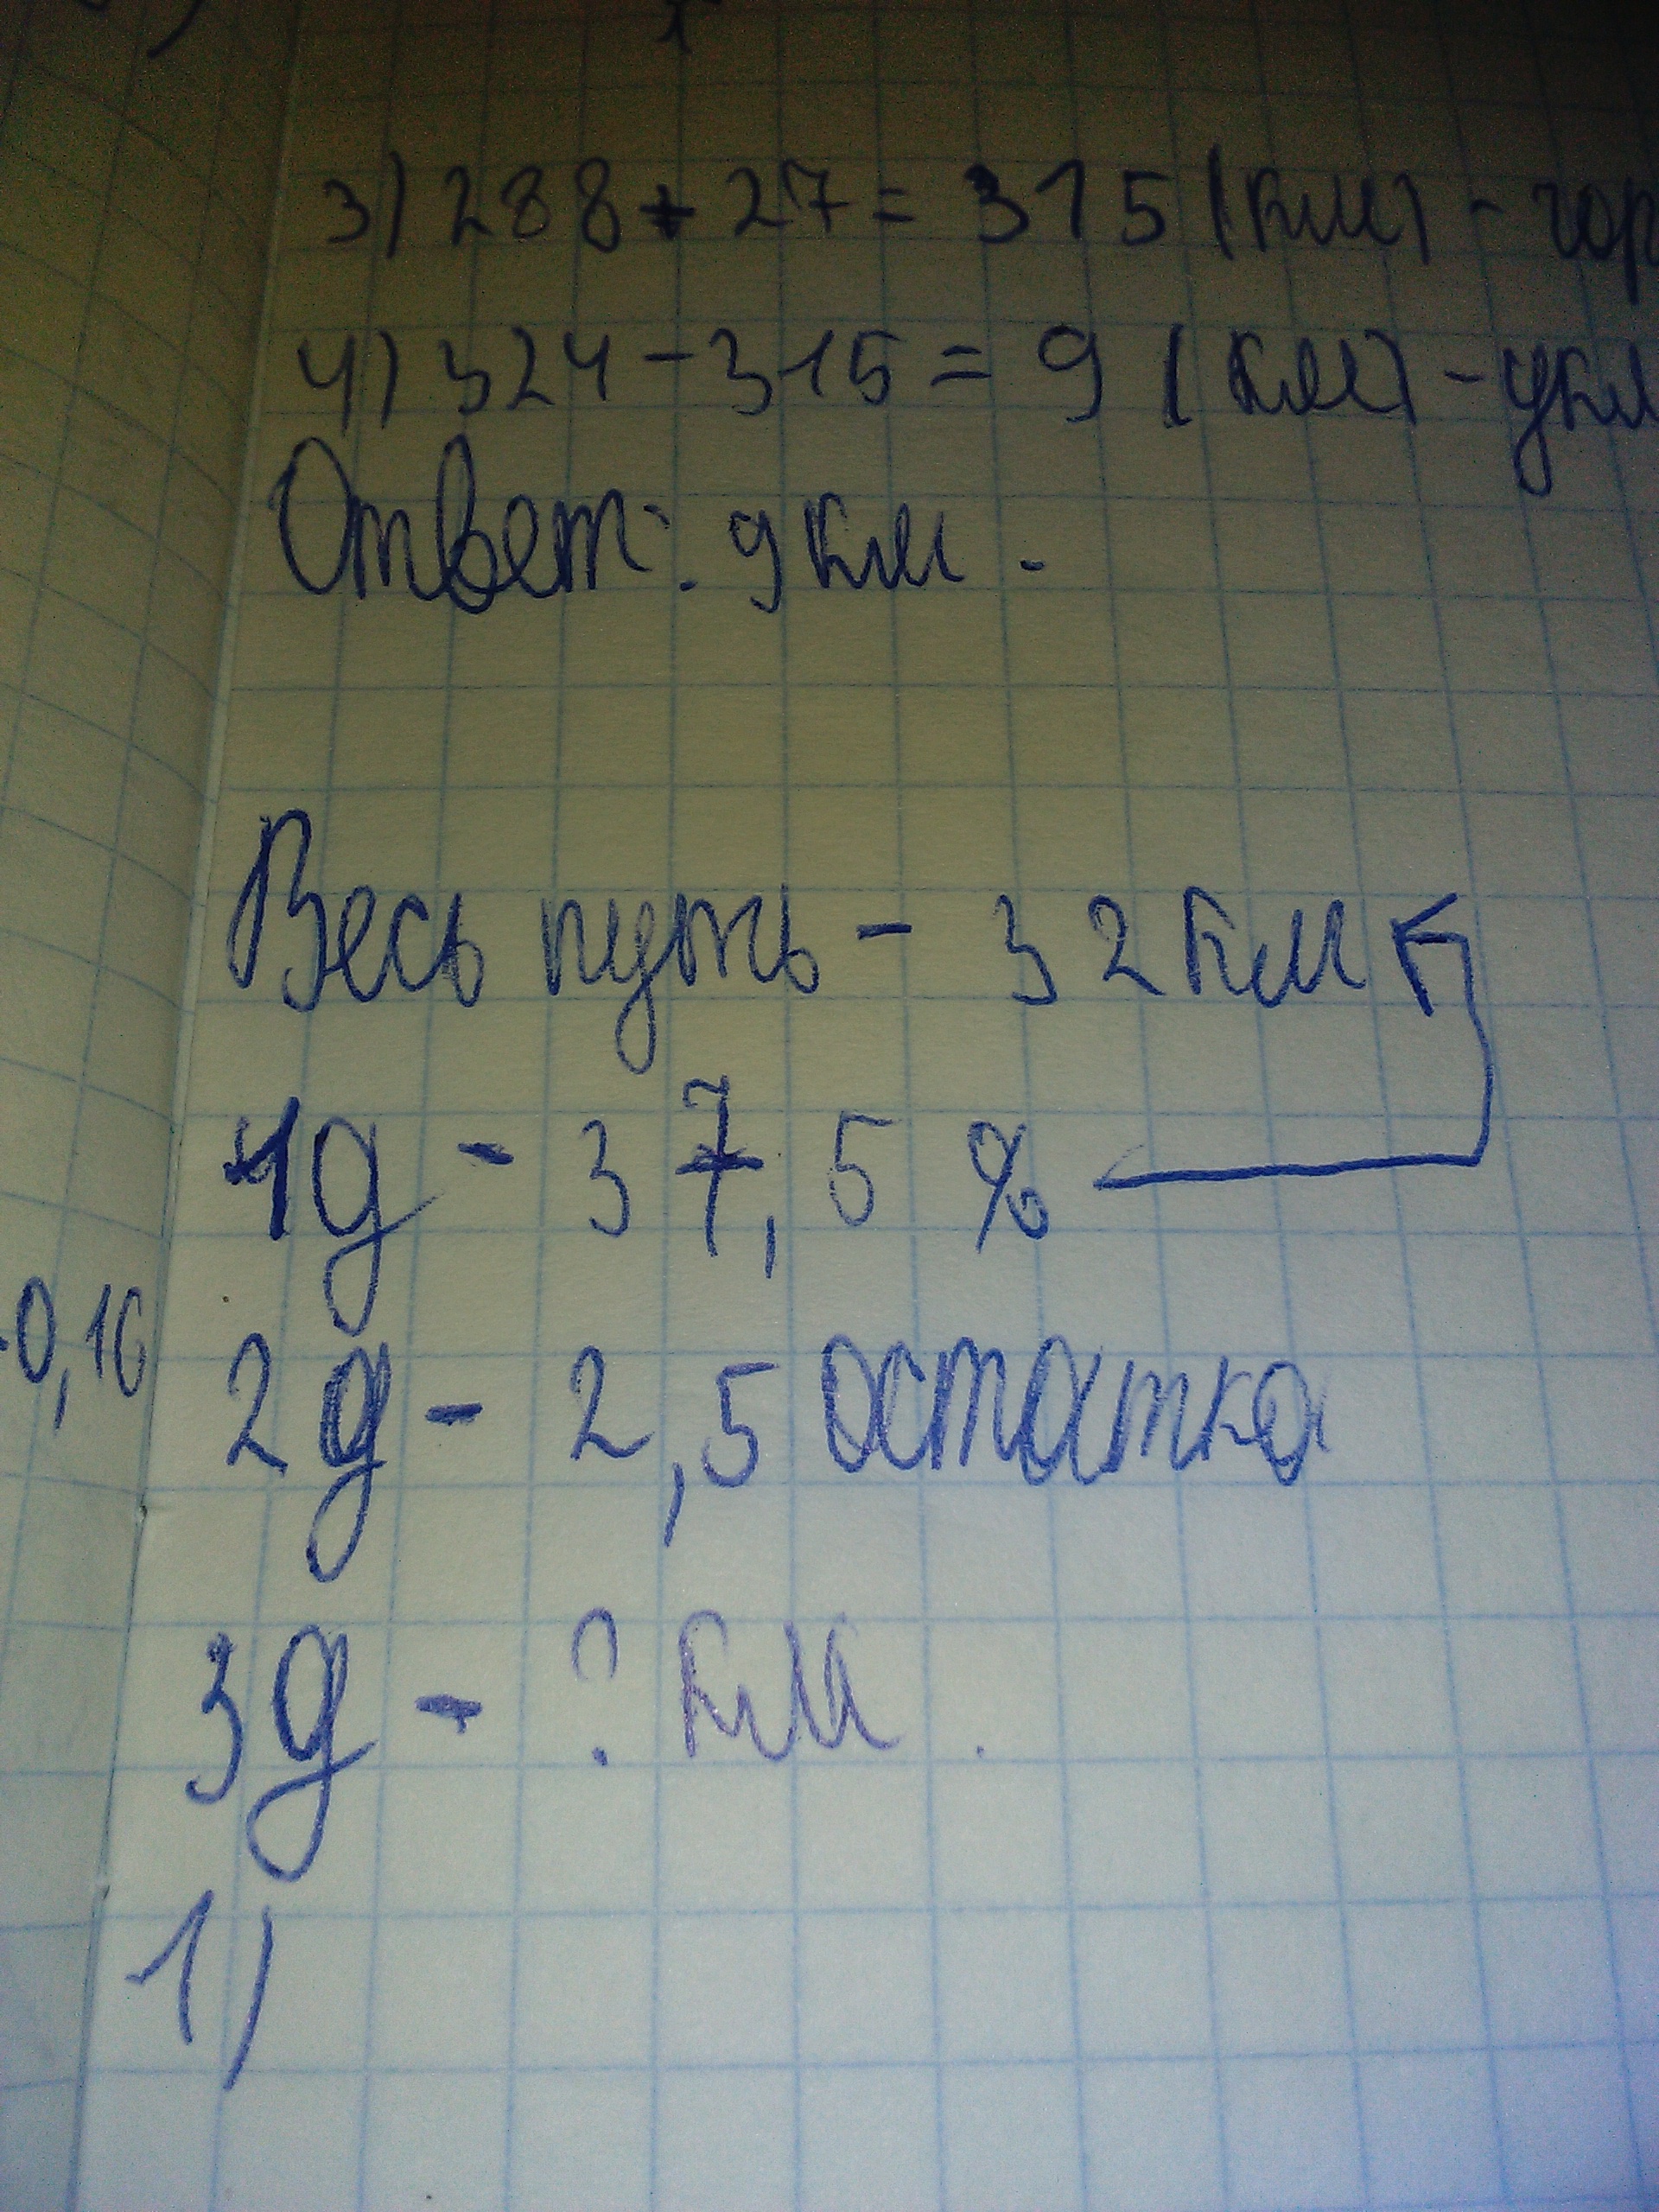 3) 288 + 27 = 315 (км) - гор
4) 324 - 315 = 9 (км) - укл
Ответ: 9 км.
Весь путь - 32 км
1д - 37,5 %
0,16
2д - 2,5 остатка
3д - ? км.
1)